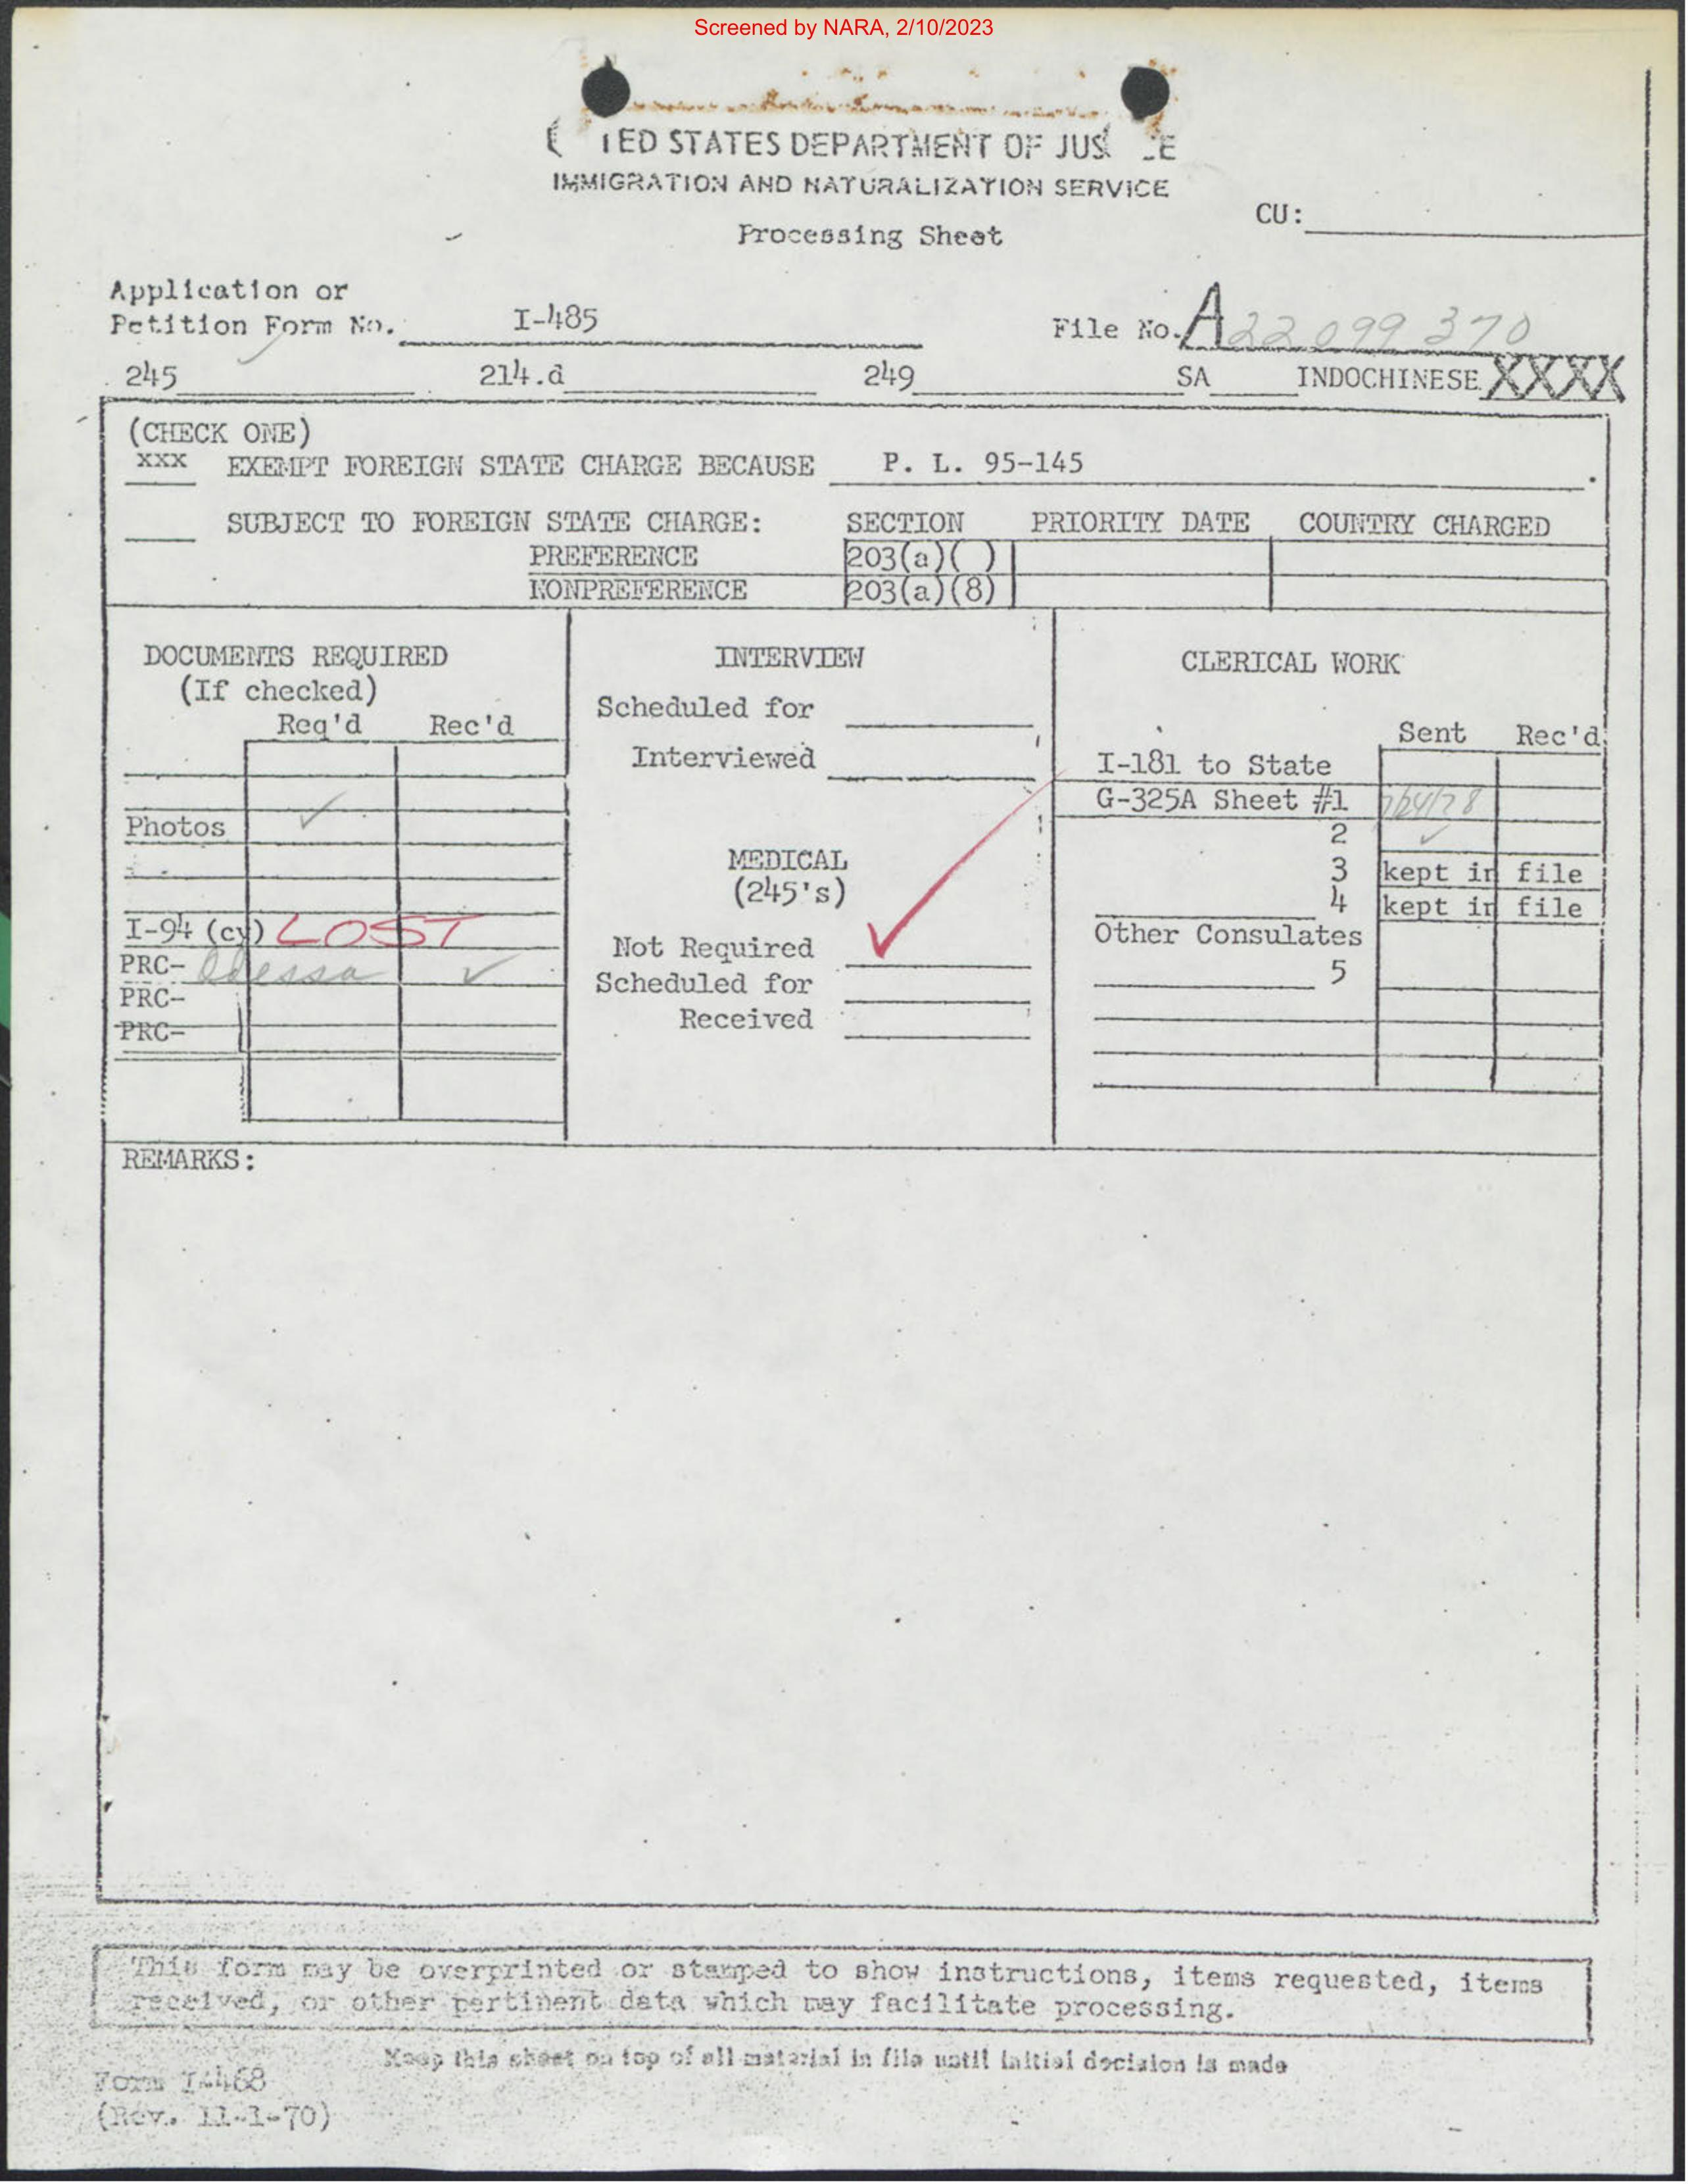 Screened by NARA, 2/10/2023
TED STATES DEPARTMENT OF JUS CE
IMMIGRATION AND NATURALIZATION SERVICE
Processing Sheet
CU:
Application or
Petition Form No. I-485
File No. A22 099 370
245 214.d 249 SA INDOCHINESE XXXX
(CHECK ONE)
xxx EXEMPT FOREIGN STATE CHARGE BECAUSE P. L. 95-145 .
SUBJECT TO FOREIGN STATE CHARGE: SECTION PRIORITY DATE COUNTRY CHARGED
PREFERENCE 203(a)( )
NONPREFERENCE 203(a)(8)
DOCUMENTS REQUIRED
(If checked)
Req'd Rec'd
Photos ✓
I-94 (cy) LOST
PRC- Odessa ✓
PRC-
PRC-
INTERVIEW
Scheduled for
Interviewed
MEDICAL
(245's)
Not Required ✓
Scheduled for
Received
CLERICAL WORK
Sent Rec'd
I-181 to State
G-325A Sheet #1 7/24/78
2 ✓
3 kept in file
4 kept in file
Other Consulates
5
REMARKS:
This form may be overprinted or stamped to show instructions, items requested, items
received, or other pertinent data which may facilitate processing.
Keep this sheet on top of all material in file until initial decision is made
Form I-468
(Rev. 11-1-70)